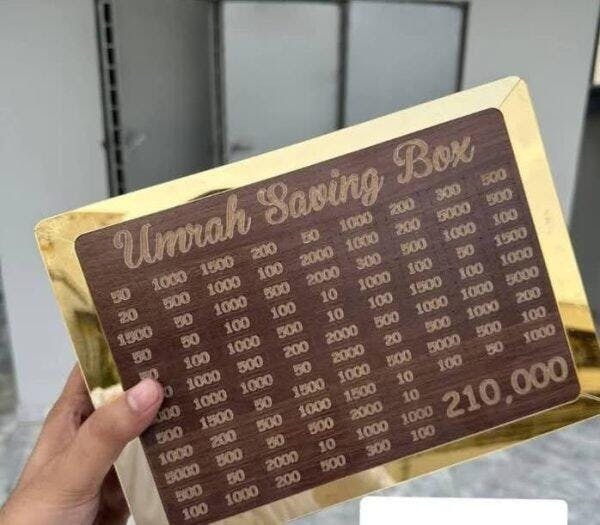 Umrah Saving Box
50 1000 1500 200 50 1000 200 300 500
20 500 1000 100 2000 1000 200 5000 500
1500 50 1000 500 2000 300 500 1000 100
50 50 100 100 10 1000 100 50 1500
100 1000 500 10 100 1500 1000 1000
1000 500 200 2000 500 1000 1000 5000
1000 1000 200 2000 20 5000 500 200
500 1500 50 50 1000 500 5000 500 100
1000 200 500 1500 1500 10 100 50 1000
5000 500 50 1000 2000 10 210,000
500 50 2000 10 1000 1000
100 1000 200 500 300 100